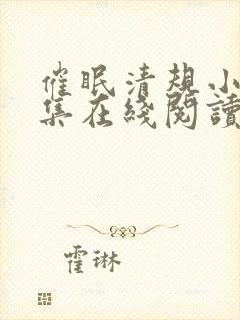 催眠清规小
集在綫閱讀
霍琳